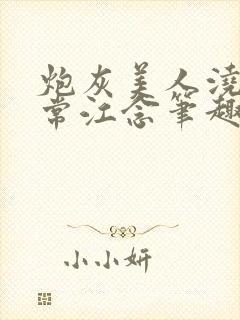 炮灰美人浇
常江念笔趣
小小妍